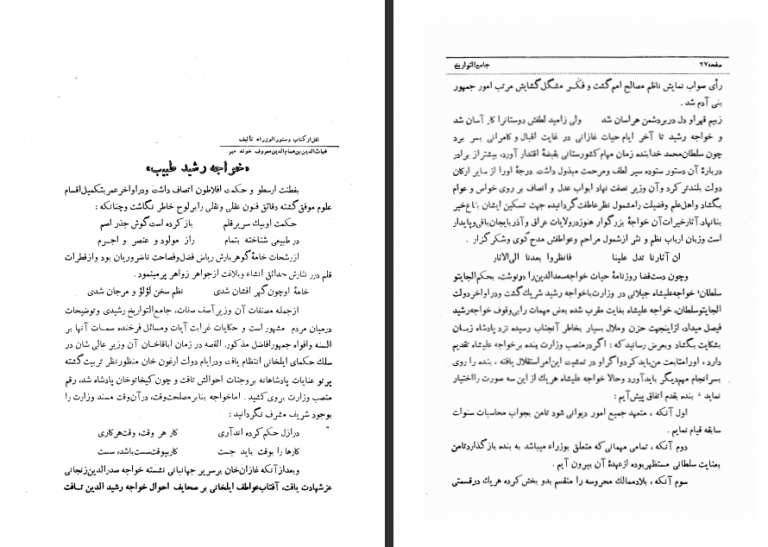 نقل از کتاب دستور الوزراء تألیف
غیاث الدین بن همام الدین معروف خوند میر
«خواجه رشید طبیب»
بفطنت ارسطو و حکمت افلاطون اتصاف داشت و در اواخر عمر بتکمیل اقسام
علوم موفق گشته دقائق فنون عقلی و نقلی را بر لوح خاطر نگاشت و چنانکه:
حکمت او بیک سر یر قلم باز کرده است گوش جذر اصم
در طبیعی شناخته بتمام راز مولود و عنصر و اجرم
از رشحات خامهٔ گوهر بارش ریاض فضل و فصاحت ناضر و ریان بود و از قطرات
قلم درر نثارش حدائق انشاء و بلاغت از جواهر زواهر پر مینمود.
خامهٔ او چون گهر افشان شدی نظم سخن لؤلؤ و مرجان شدی
از جمله مصنفات آن وزیر آصف سمات، جامع التواریخ رشیدی و توضیحات
در میان مردم مشهور است و حکایات غرابت آیات و مسائل فرخنده سمات آنها بر
السنه و افواه جمهور افاضل مذکور. القصه در زمان اباقاخان آن وزیر عالی شان در
سلک حکمای ایلخانی انتظام یافت و در ایام دولت ارغون خان منظور نظر تربیت گشته
پرتو عنایات پادشاهانه بر وجنات احوالش تافت و چون کیخاتو خان پادشاه شد، رقم
منصب وزارت بروی کشید. اما خواجه بنابر مصلحت وقت، در آن وقت مسند وزارت را
بوجود شریف مشرف نگردانید:
در ازل حکم کرده اند آری کار هر وقت، وقت هر کاری
کارها را بوقت باید جست کار بیوقت سست باشد، سست
و بعد از آنکه غازان خان بر سریر جهانبانی نشسته خواجه صدر الدین زنجانی
عز شهادت یافت، آفتاب عواطف ایلخانی بر صحایف احوال خواجه رشید الدین تافت
صفحه ۲۷ جامع التواریخ
رأی صواب نمایش ناظم مصالح امم گشت و فکر مشگل گشایش مرتب امور جمهور
بنی آدم شد.
زبیم قهر او دل در بر دشمن هراسان شد ولی زامید لطفش دوستانرا کار آسان شد
و خواجه رشید تا آخر ایام حیات غازانی در غایت اقبال و کامرانی بسر برد
چون سلطان محمد خدابنده زمان مهام کشورستانی بقبضهٔ اقتدار آورد، بیشتر از برادر
دربارهٔ آن دستور ستوده سیر لطف و مرحمت مبذول داشت. درجهٔ او را از سایر ارکان
دولت بلند تر کرد و آن وزیر نصفت نهاد ابواب عدل و انصاف بر روی خواس و عوام
بگشاد و اهل علم و فضیلت را مشمول نظر عاطفت گردانیده جهت تسکین ایشان بقاع خیر
بنا نهاد آثار خیرات آن خواجهٔ بزرگوار هنوز در ولایات عراق و آذربایجان باقی و پایدار
است و زبان ارباب نظم و نثر از شمول مراحم و عواطفش مدح گوی و شکر گزار.
ان آثارنا تدل علینا فانظروا بعدنا الی الاثار
و چون دست قضا روزنامهٔ حیات خواجه سعدالدین را در نوشت، بحکم الجایتو
سلطان، خواجه علیشاه جیلانی در وزارت با خواجه رشید شریک گشت و در اواخر دولت
الجایتو سلطان، خواجه علیشاه بغایت مقرب شده بعض مهمات را بی وقوف خواجه رشید
فیصل میداد، از اینجهت حزن و ملال بسیار بخاطر آنجناب رسیده نزد پادشاه زبان
بشکایت بگشاد و بعرض رسانید که: اگر در منصب وزارت پنده بر خواجه علیشاه تقدیم
دارد، او را متابعت من باید کرد و اگر او در تمشیت این امر استقلال یافته، بنده را روی
بسر انجام مهم دیگر باید آورد و حالا خواجه علیشاه هر یک از این سه صورت را اختیار
نماید، بنده بقدم اتفاق پیش آیم:
اول آنکه، متعهد جمیع امور دیوانی شود تا من بجواب محاسبات سنوات
سابقه قیام نمایم.
دوم آنکه، تمامی مهماتی که متعلق بوزراء میباشد به بنده باز گذارد تا من
بعنایت سلطانی مستظهر بوده از عهدهٔ آن بیرون آیم.
سوم آنکه، بلاد ممالک محروسه را منقسم بدو بخش کرده هر یک در قسمتی